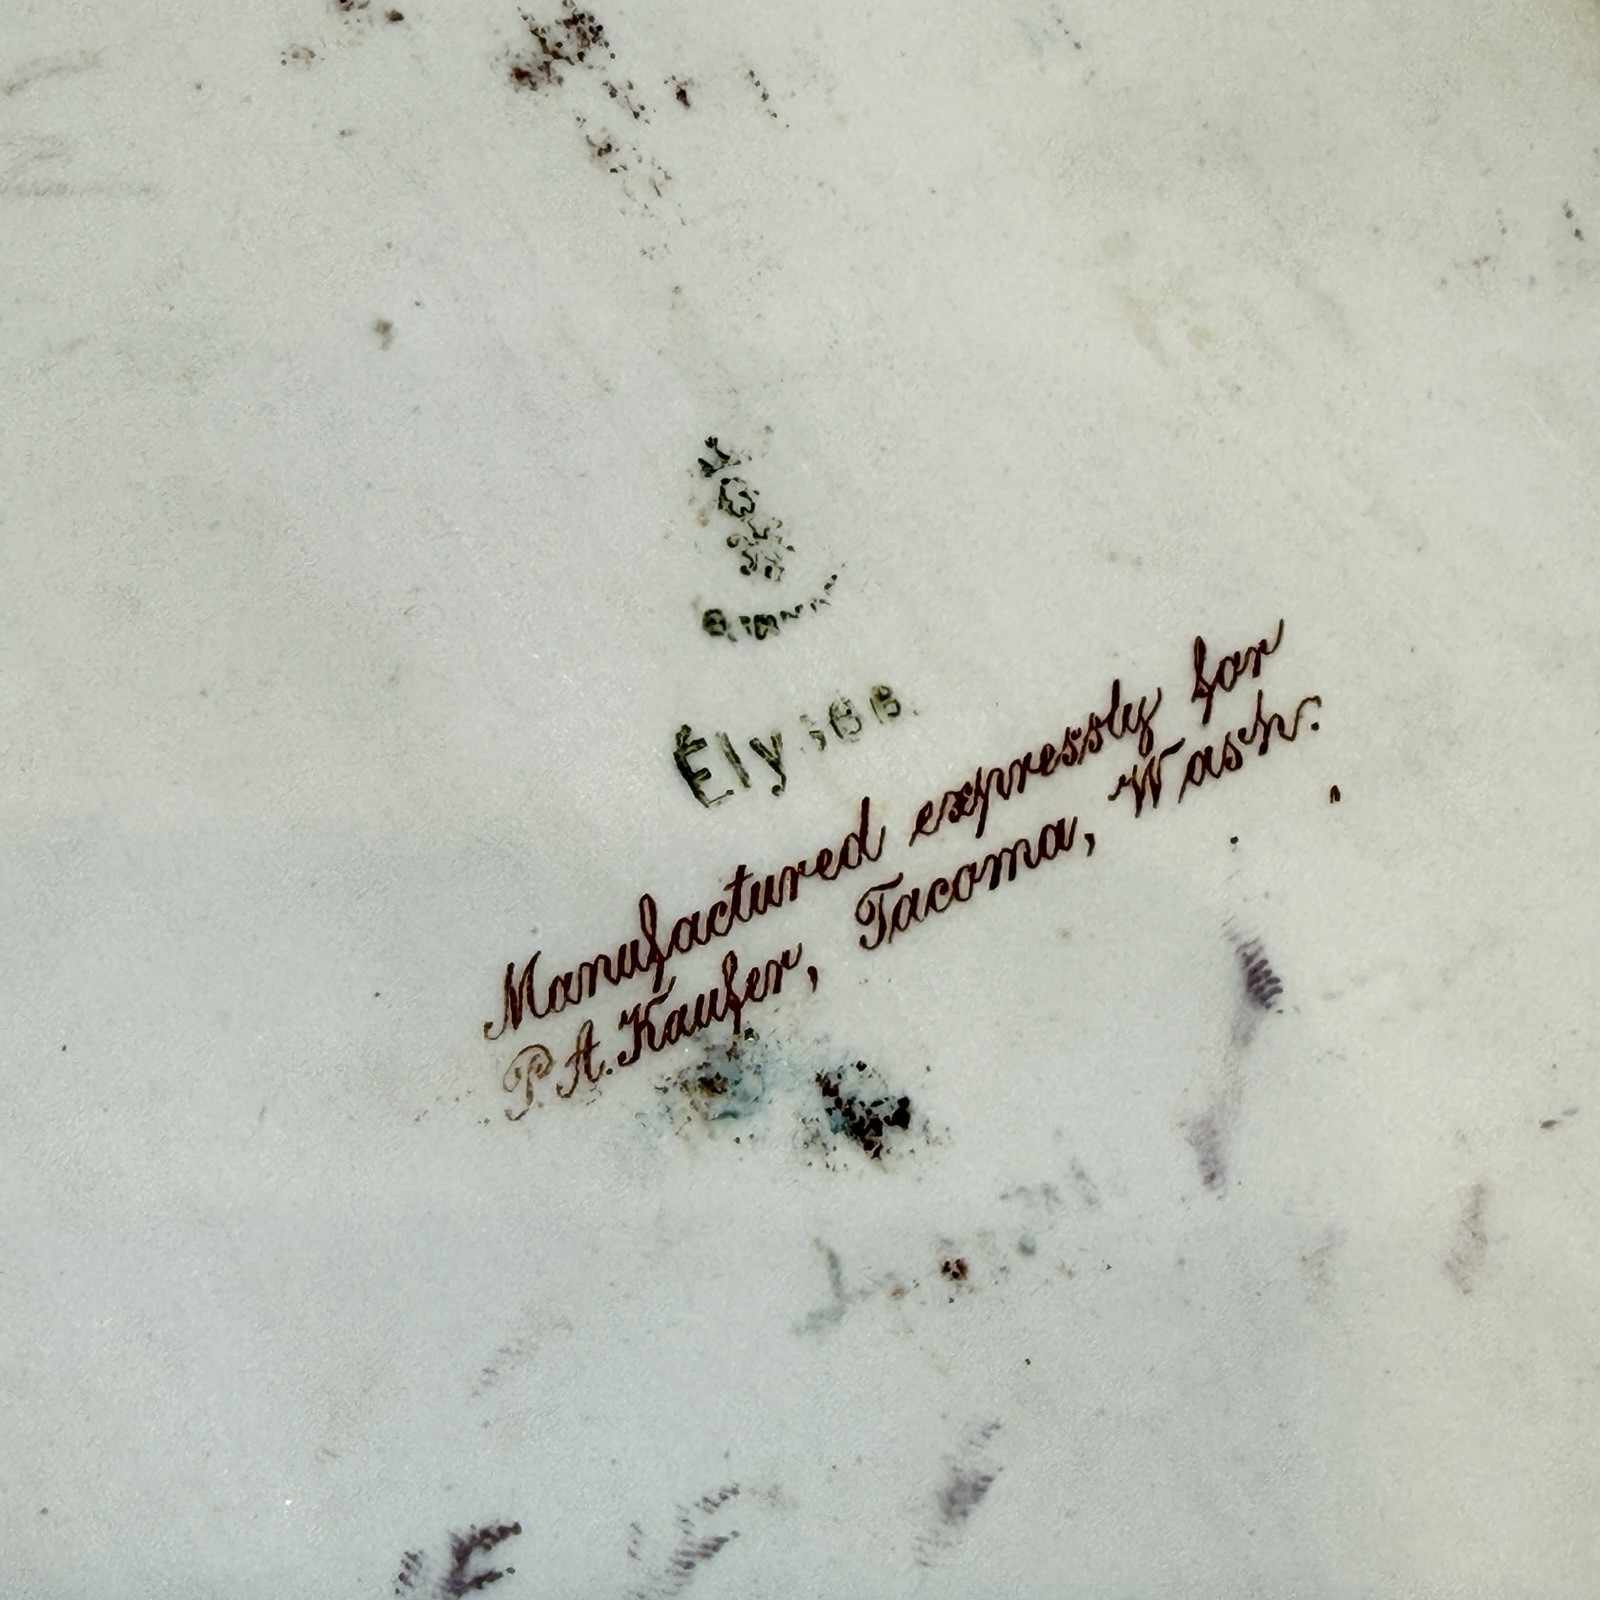 Élysée
Manufactured expressly for
P. A. Kaufer, Tacoma, Wash.